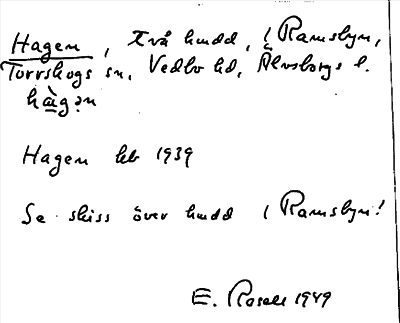 Hagen, Två hmdd, i Ramsbyn,
Torrskogs sn, Vedbo hd, Älvsborgs l.
hà̱gən
Hagen hb 1939
Se skiss över hmdd i Ramsbyn!
E. Rosell 1949